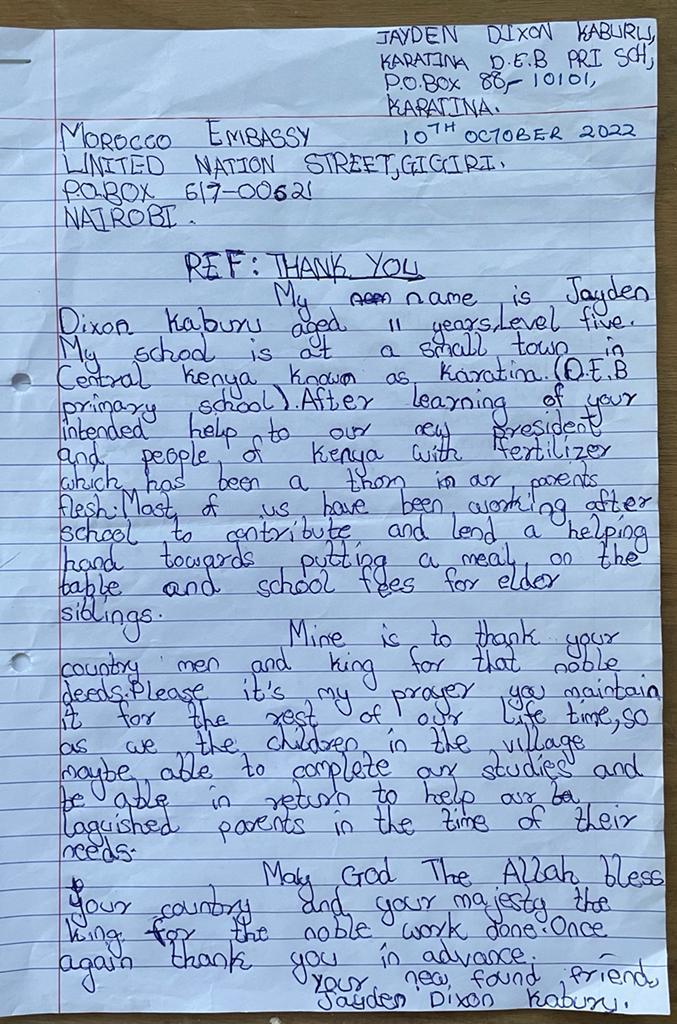 JAYDEN DIXON KABURU,
KARATINA D.E.B PRI SCH,
P.O.BOX 88,-10101,
KARATINA.
MOROCCO EMBASSY 10TH OCTOBER 2022
UNITED NATION STREET,GIGIRI.
P.O.BOX 617-00621
NAIROBI.
REF: THANK YOU
My name is Jayden
Dixon Kaburu aged 11 years,Level five.
My school is at a small town in
Central Kenya known as Karatina.(D.E.B
primary school).After learning of your
intended help to our new president
and people of Kenya with fertilizer
which has been a thorn in our parents
flesh.Most of us have been working after
school to contribute and lend a helping
hand towards putting a meal on the
table and school fees for elder
siblings.
Mine is to thank your
country men and king for that noble
deeds.Please it's my prayer you maintain
it for the rest of our life time,so
as we the children in the village
maybe able to complete our studies and
be able in return to help our
laguished parents in the time of their
needs.
May God The Allah bless
your country and your majesty the
king for the noble work done.Once
again thank you in advance.
Your new found friend,
Jayden Dixon Kaburu.